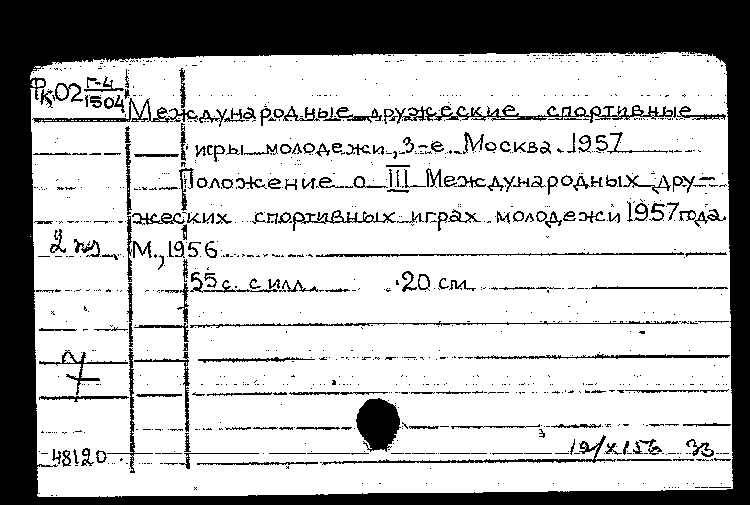 Фк02 Г-4/1504
Международные дружеские спортивные
игры молодежи, 3-е. Москва. 1957
Положение о III Международных дру-
жеских спортивных играх молодежи 1957 года.
М., 1956
55 с. с илл. 20 см.
48120